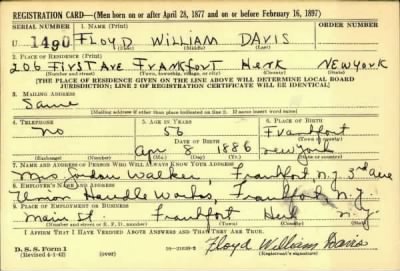 REGISTRATION CARD—(Men born on or after April 28, 1877 and on or before February 16, 1897)
SERIAL NUMBER 1. NAME (Print) ORDER NUMBER
U 1490 FLOYD WILLIAM DAVIS
(First) (Middle) (Last)
2. PLACE OF RESIDENCE (Print)
206 FIRST AVE FRANKFORT HERK NEW YORK
(Number and street) (Town, township, village, or city) (County) (State)
[THE PLACE OF RESIDENCE GIVEN ON THE LINE ABOVE WILL DETERMINE LOCAL BOARD
JURISDICTION; LINE 2 OF REGISTRATION CERTIFICATE WILL BE IDENTICAL]
3. MAILING ADDRESS
Same
[Mailing address if other than place indicated on line 2. If same insert word same]
4. TELEPHONE 5. AGE IN YEARS 6. PLACE OF BIRTH
no 56 Frankfort
DATE OF BIRTH (Town or county)
Apr 8 1886 New York
(Exchange) (Number) (Mo.) (Day) (Yr.) (State or country)
7. NAME AND ADDRESS OF PERSON WHO WILL ALWAYS KNOW YOUR ADDRESS
Mrs Gordon Walker Frankfort N.Y. 3rd Ave
8. EMPLOYER'S NAME AND ADDRESS
Union Handle Works, Frankfort N.Y.
9. PLACE OF EMPLOYMENT OR BUSINESS
Main St. Frankfort Herk N.Y.
(Number and street or R. F. D. number) (Town) (County) (State)
I AFFIRM THAT I HAVE VERIFIED ABOVE ANSWERS AND THAT THEY ARE TRUE.
D. S. S. Form 1
(Revised 4-1-42) (over)
Floyd William Davis
(Registrant's signature)